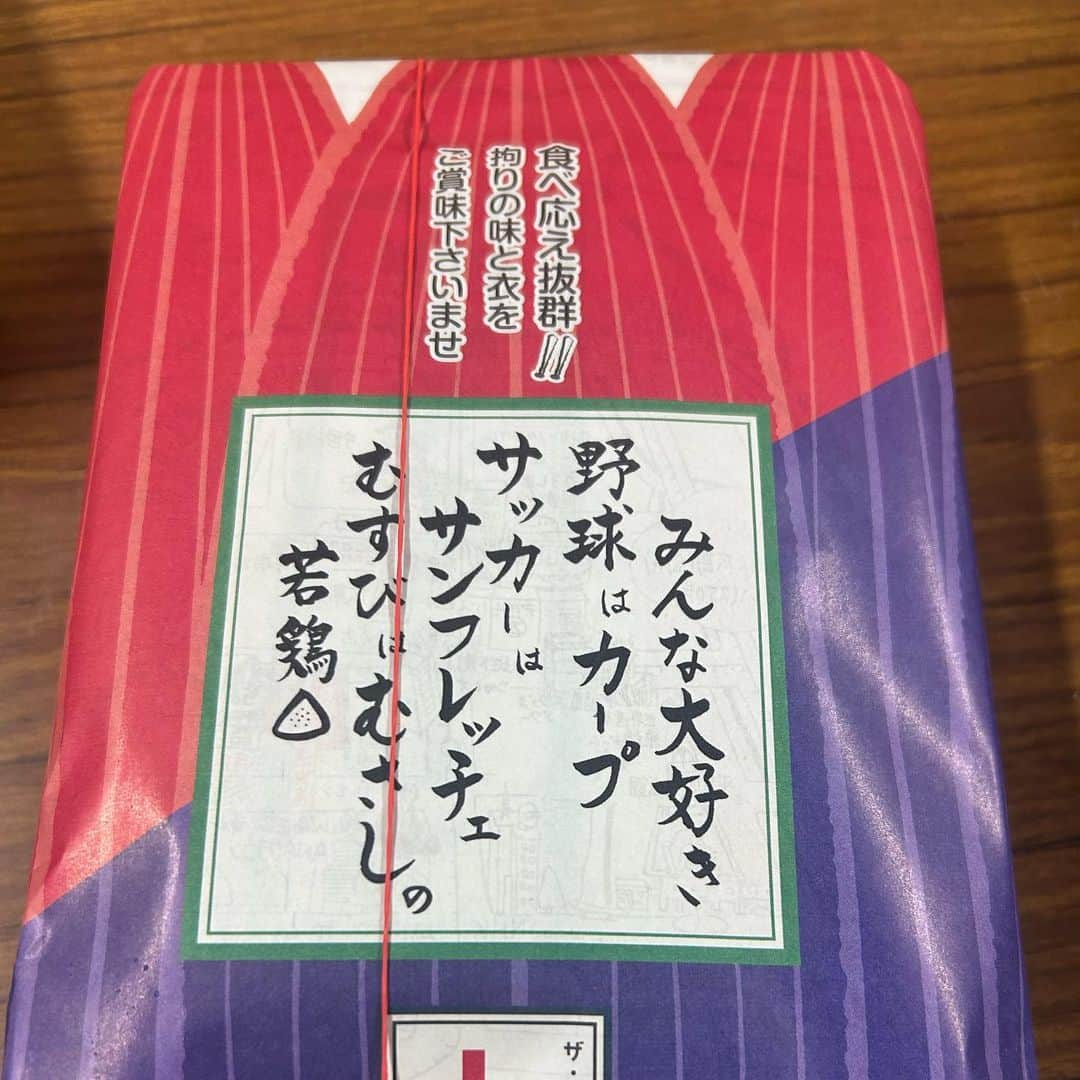 食べ応え抜群!!
拘りの味と衣を
ご賞味下さいませ
みんな大好き
野球はカープ
サッカーは
サンフレッチェ
むすびはむさしの
若鶏
ザ・